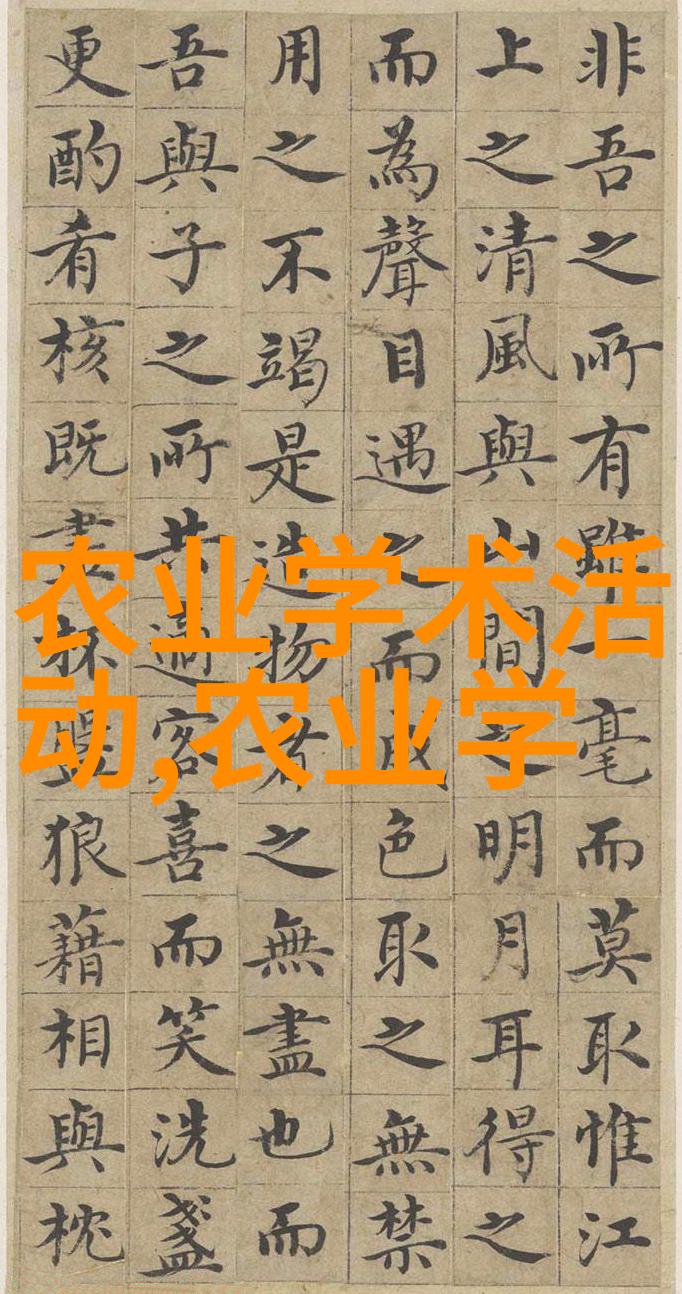 非吾之所有雖一毫而莫取惟江
上之清風與山間之明月耳得之
而為聲目遇之而成色取之無禁
用之不竭是造物者之無盡也而
吾與子之所共適客喜而笑洗盞
更酌肴核既盡杯盤狼藉相與枕
农业学术活
动,农业学